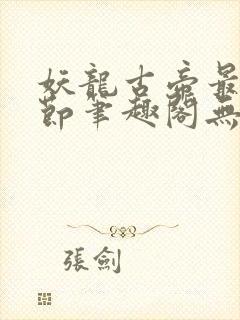 妖龍古帝最
節筆趣閣無
張劍